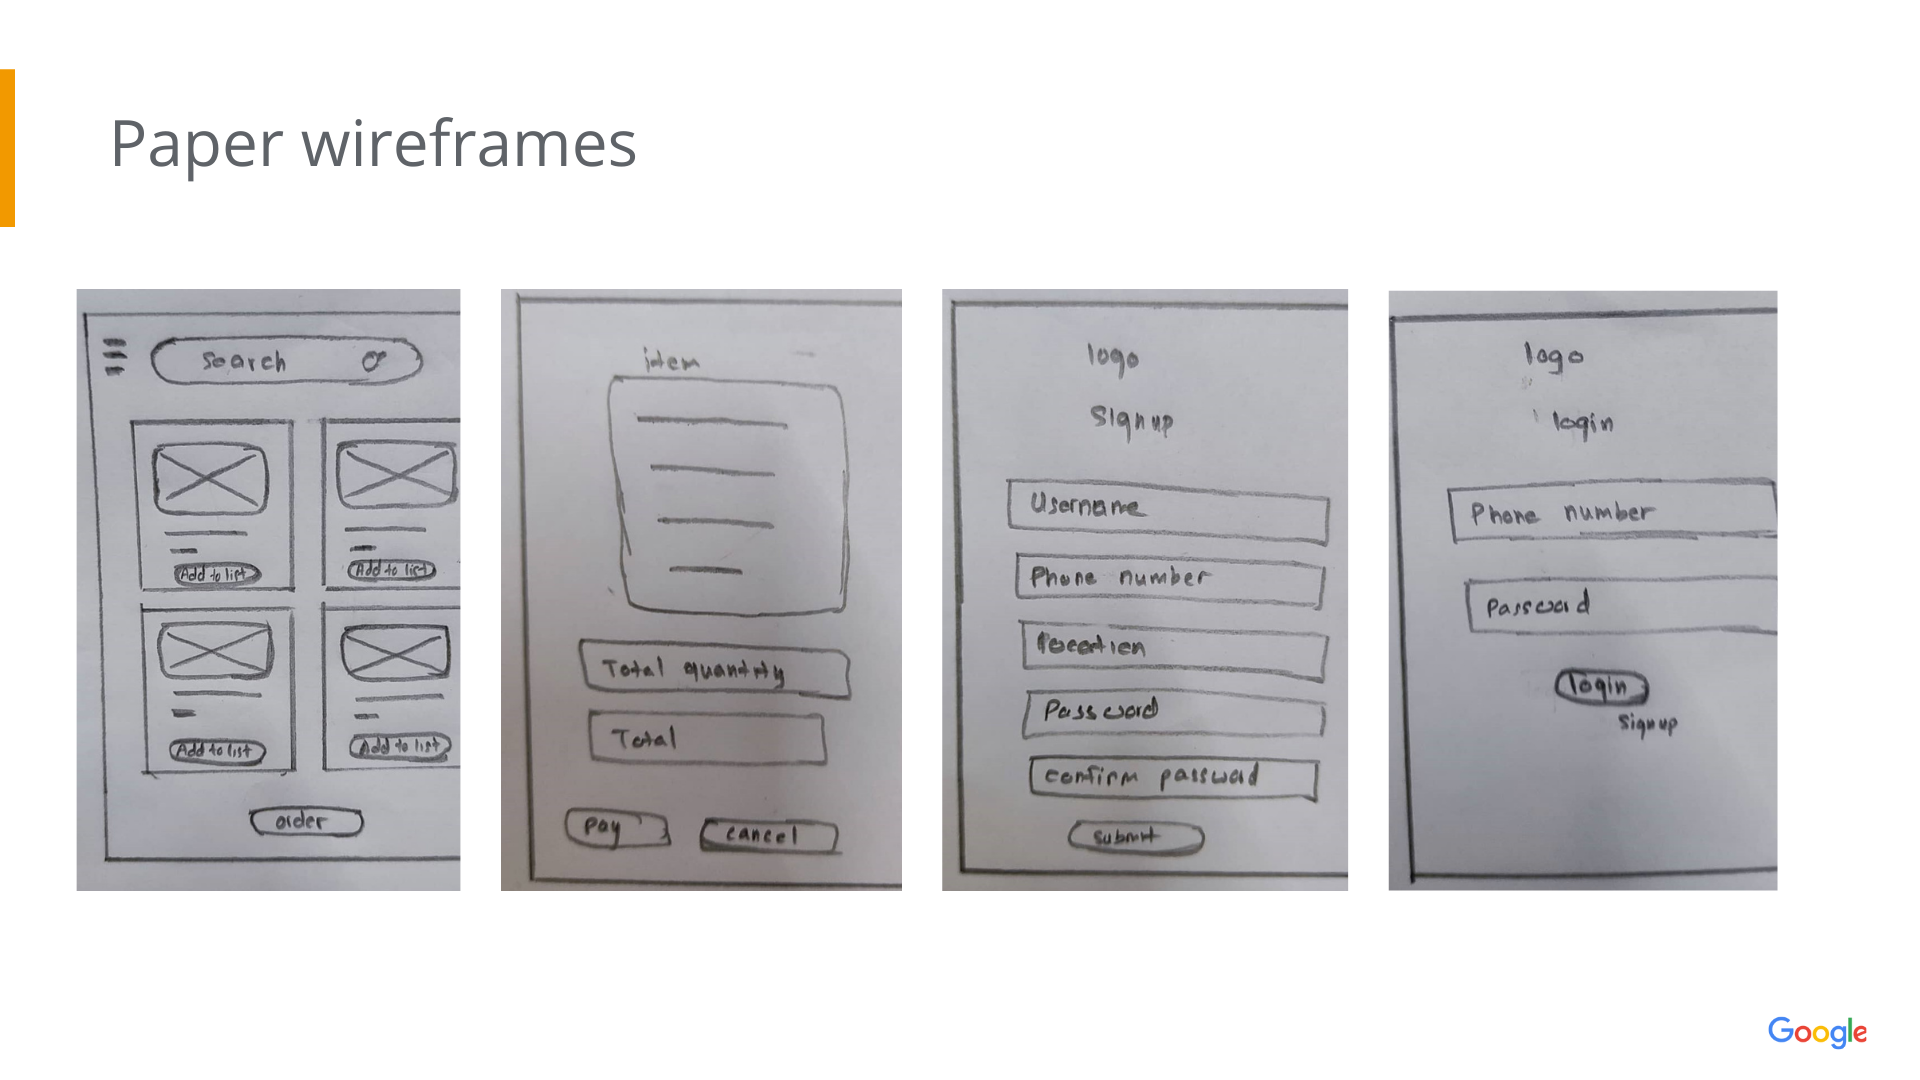 Paper wireframes
search
Add to list
Add to list
Add to list
Add to list
order
item
Total quantity
Total
pay
cancel
logo
Signup
Username
Phone number
Password
confirm password
submit
logo
login
Phone number
Password
login
Signup
Google